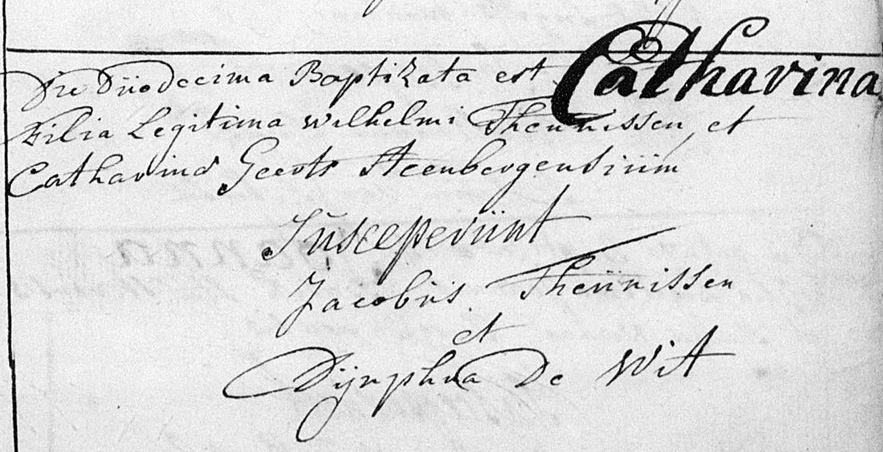 Die Duodecima Baptizata est Catharina
Filia Legitima Wilhelmi Theunissen, et
Catharinæ Geerts Steenbergensium
Susceperunt
Jacobus Theunissen
et
Dijnphna De Wit